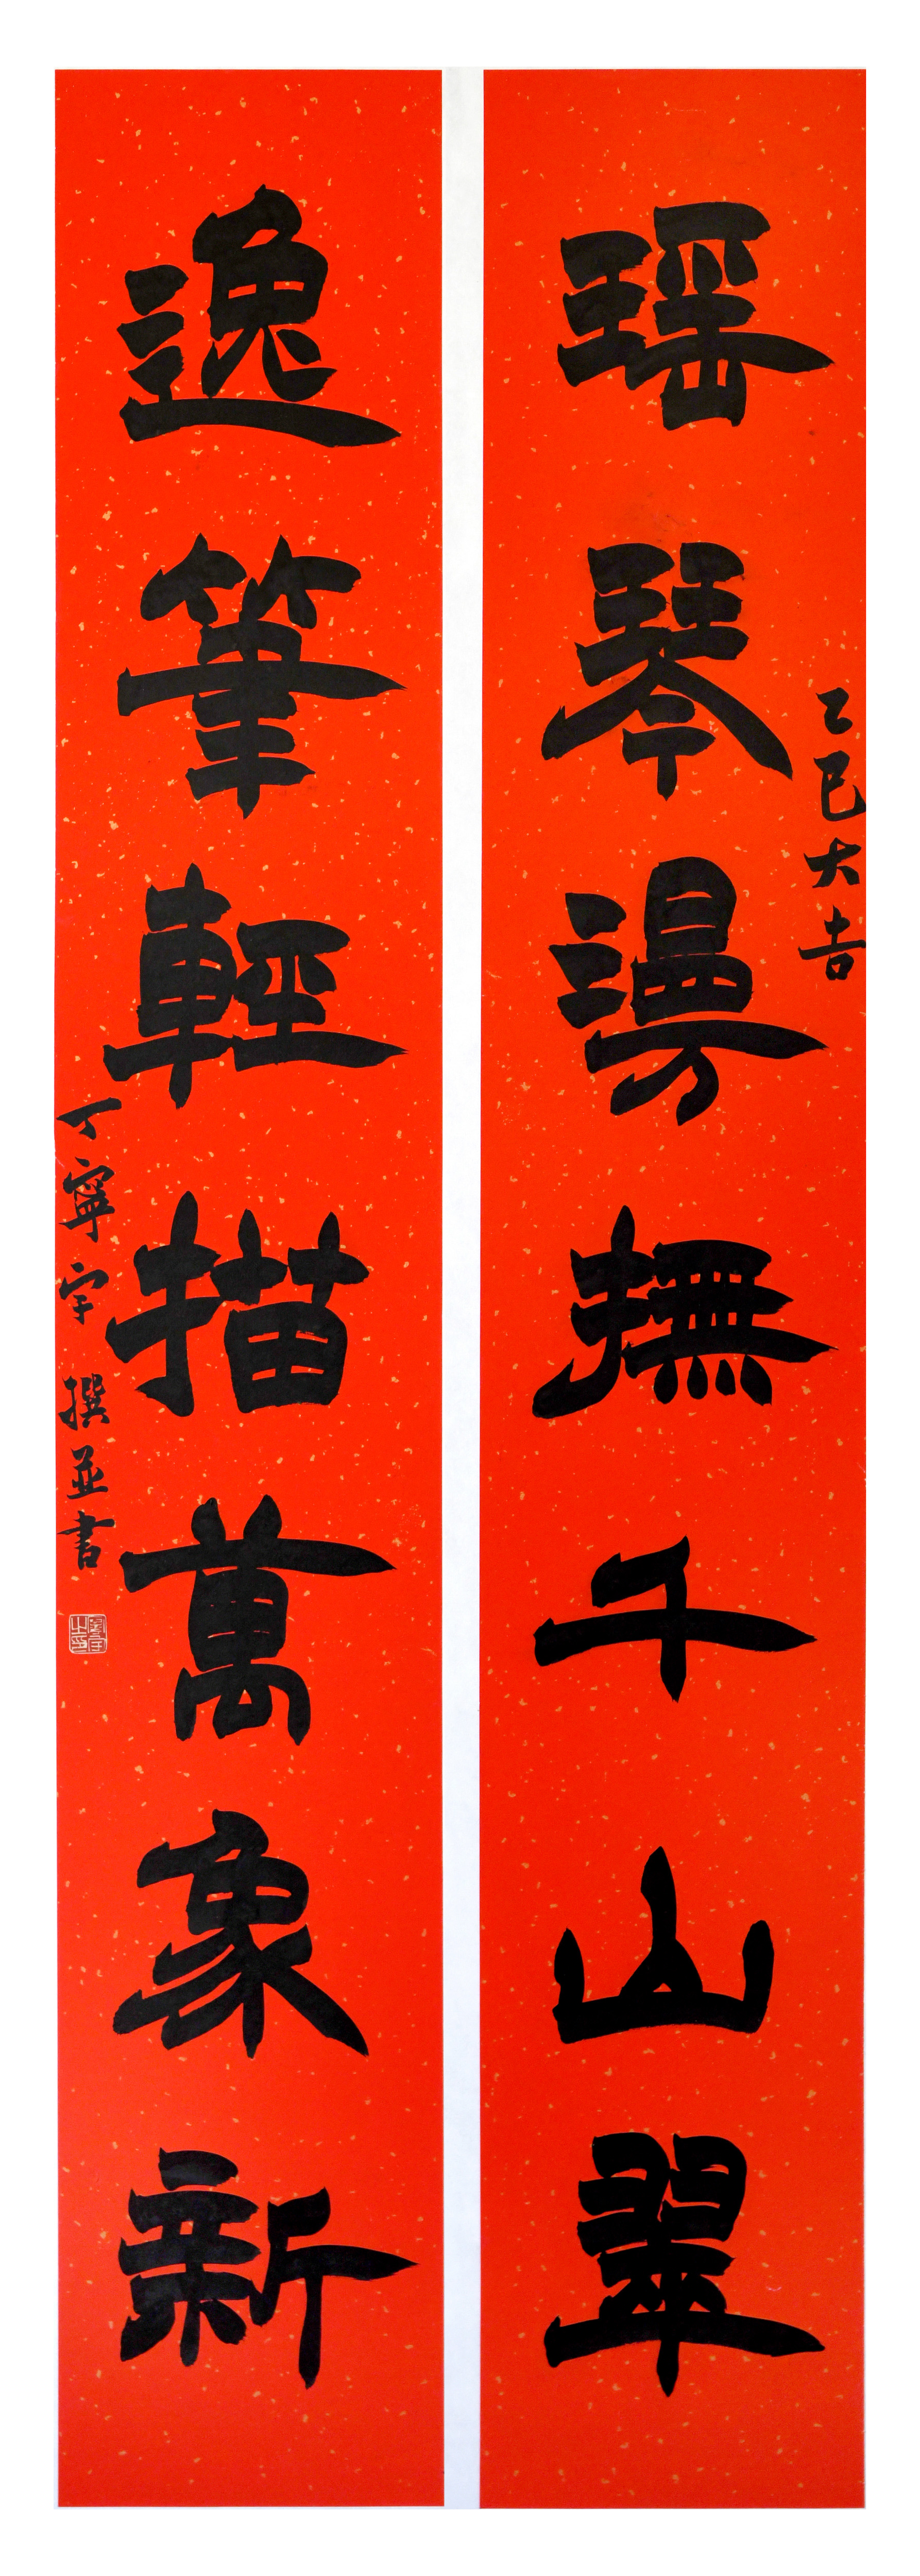 瑶琴漫撫千山翠
乙巳大吉
逸筆輕描萬象新
丁寧宇撰並書